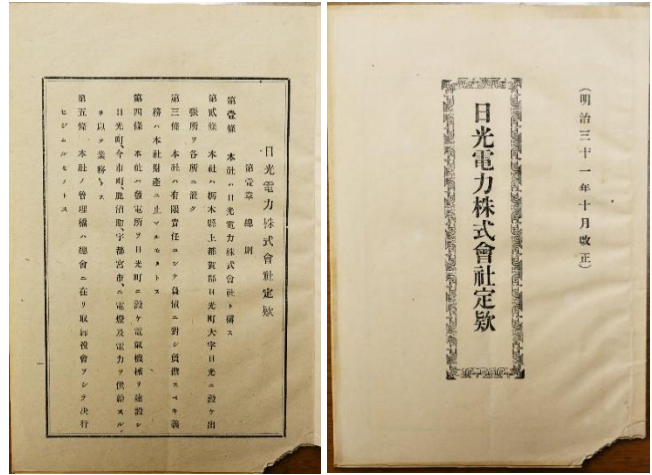 (明治三十一年十月改正)
日光電力株式會社定欵
日光電力株式會社定欵
第壹章 總則
第壹條 本社ハ日光電力株式會社ト稱ス
第貳條 本社ハ栃木縣上都賀郡日光町大字日光ニ設ケ出
張所ヲ各所ニ設ク
第三條 本社ハ有限責任ニシテ負債ニ對シ負擔スベキ義
務ハ本社財產ニ止マルモノトス
第四條 本社ハ發電所ヲ日光町ニ設ケ電氣機械ヲ建設シ
日光町、今市町、鹿沼町、宇都宮市、ニ電燈及電力ヲ供給スル
ヲ以テ業務トス
第五條 本社ノ管理權ハ總會ニ在リ取締役會ヲシテ決行
セシムルモノトス